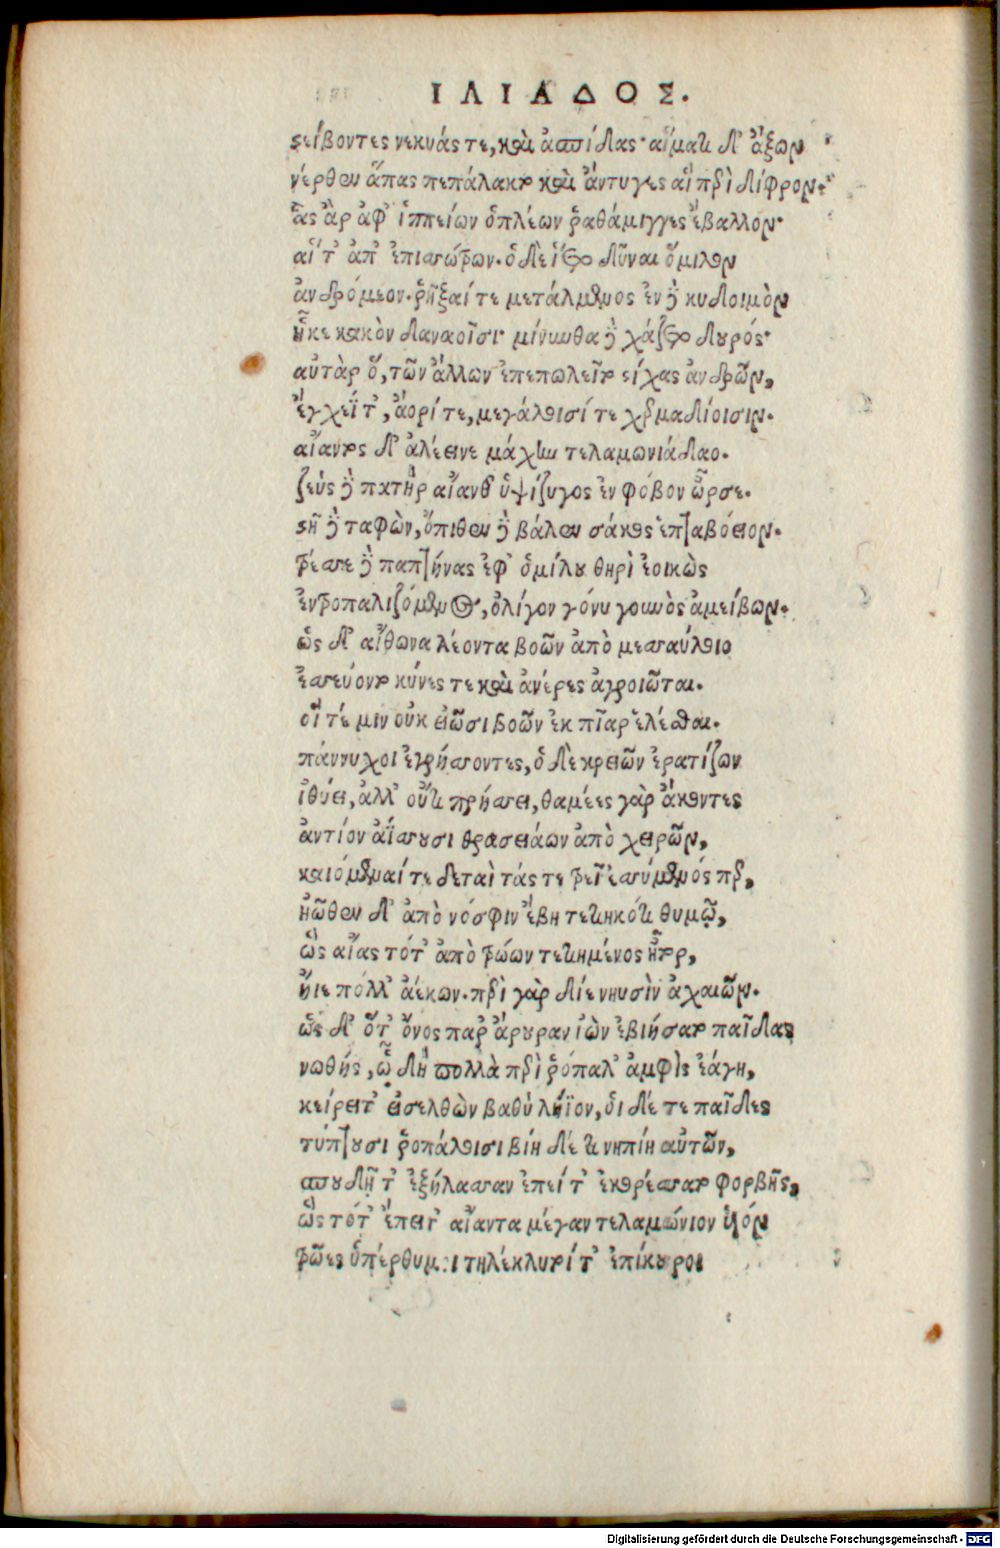 ΙΛΙΑΔΟΣ.
στείβοντες νεκυάς τε, καὶ ἀσπίδας· αἵματι δ' ἄξων
νέρθεν ἅπας πεπάλακτο καὶ ἄντυγες αἳ περὶ δίφρον·
ἃς ἂρ ἀφ' ἱππείων ὁπλέων ῥαθάμιγγες ἔβαλλον·
αἵ τ' ἀπ' ἐπισσώτρων. ὁ δὲ ἵετο δῦναι ὅμιλον
ἀνδρόμεον. ῥῆξαί τε μετάλμενος ἐν δὲ κυδοιμὸν
ἧκε κακὸν δαναοῖσι· μίνυνθα δὲ χάζετο δουρός·
αὐτὰρ ὅ, τῶν ἄλλων ἐπεπωλεῖτο στίχας ἀνδρῶν,
ἔγχεΐ τ', ἄορί τε, μεγάλοισί τε χερμαδίοισιν.
αἴαντος δ' ἀλέεινε μάχην τελαμωνιάδαο.
ζεὺς δὲ πατὴρ αἴανθ' ὑψίζυγος ἐν φόβον ὦρσε.
στῆ δὲ ταφὼν, ὄπιθεν δὲ βάλεν σάκος ἑπταβόειον.
τρέσσε δὲ παπτήνας ἐφ' ὁμίλου θηρὶ ἐοικὼς
ἐντροπαλιζόμενος, ὀλίγον γόνυ γουνὸς ἀμείβων.
ὡς δ' αἴθωνα λέοντα βοῶν ἀπὸ μεσσαύλοιο
ἐσσεύοντο κύνες τε καὶ ἀνέρες ἀγροιῶται.
οἵ τέ μιν οὐκ εἰῶσι βοῶν ἐκ πῖαρ ἑλέσθαι.
πάννυχοι ἐγρήσσοντες, ὁ δὲ κρειῶν ἐρατίζων
ἰθύει, ἀλλ' οὔτι πρήσσει, θαμέες γὰρ ἄκοντες
ἀντίον ἀΐσσουσι θρασειάων ἀπὸ χειρῶν,
καιόμεναί τε δεταὶ τάς τε τρεῖ ἐσσύμενός περ,
ἠῶθεν δ' ἀπὸ νόσφιν ἔβη τετιηκότι θυμῷ,
ὣς αἴας τότ' ἀπὸ τρώων τετιημένος ἦτορ,
ἤϊε πόλλ' ἀέκων. περὶ γὰρ δίε νηυσὶν ἀχαιῶν.
ὡς δ' ὅτ' ὄνος παρ' ἄρουραν ἰὼν ἐβιήσατο παῖδας
νωθής, ᾧ δὴ πολλὰ περὶ ῥόπαλ' ἀμφὶς ἐάγη,
κείρει τ' εἰσελθὼν βαθὺ λήϊον, οἱ δέ τε παῖδες
τύπτουσι ῥοπάλοισι βίη δέ τι νηπίη αὐτῶν,
σπουδῆ τ' ἐξήλασσαν ἐπεί τ' ἐκορέσσατο φορβῆς,
ὣς τότ' ἔπειτ' αἴαντα μέγαν τελαμώνιον υἱόν
τρῶες ὑπέρθυμοι τηλέκλυτοί τ' ἐπίκουροι
Digitalisierung gefördert durch die Deutsche Forschungsgemeinschaft - DFG